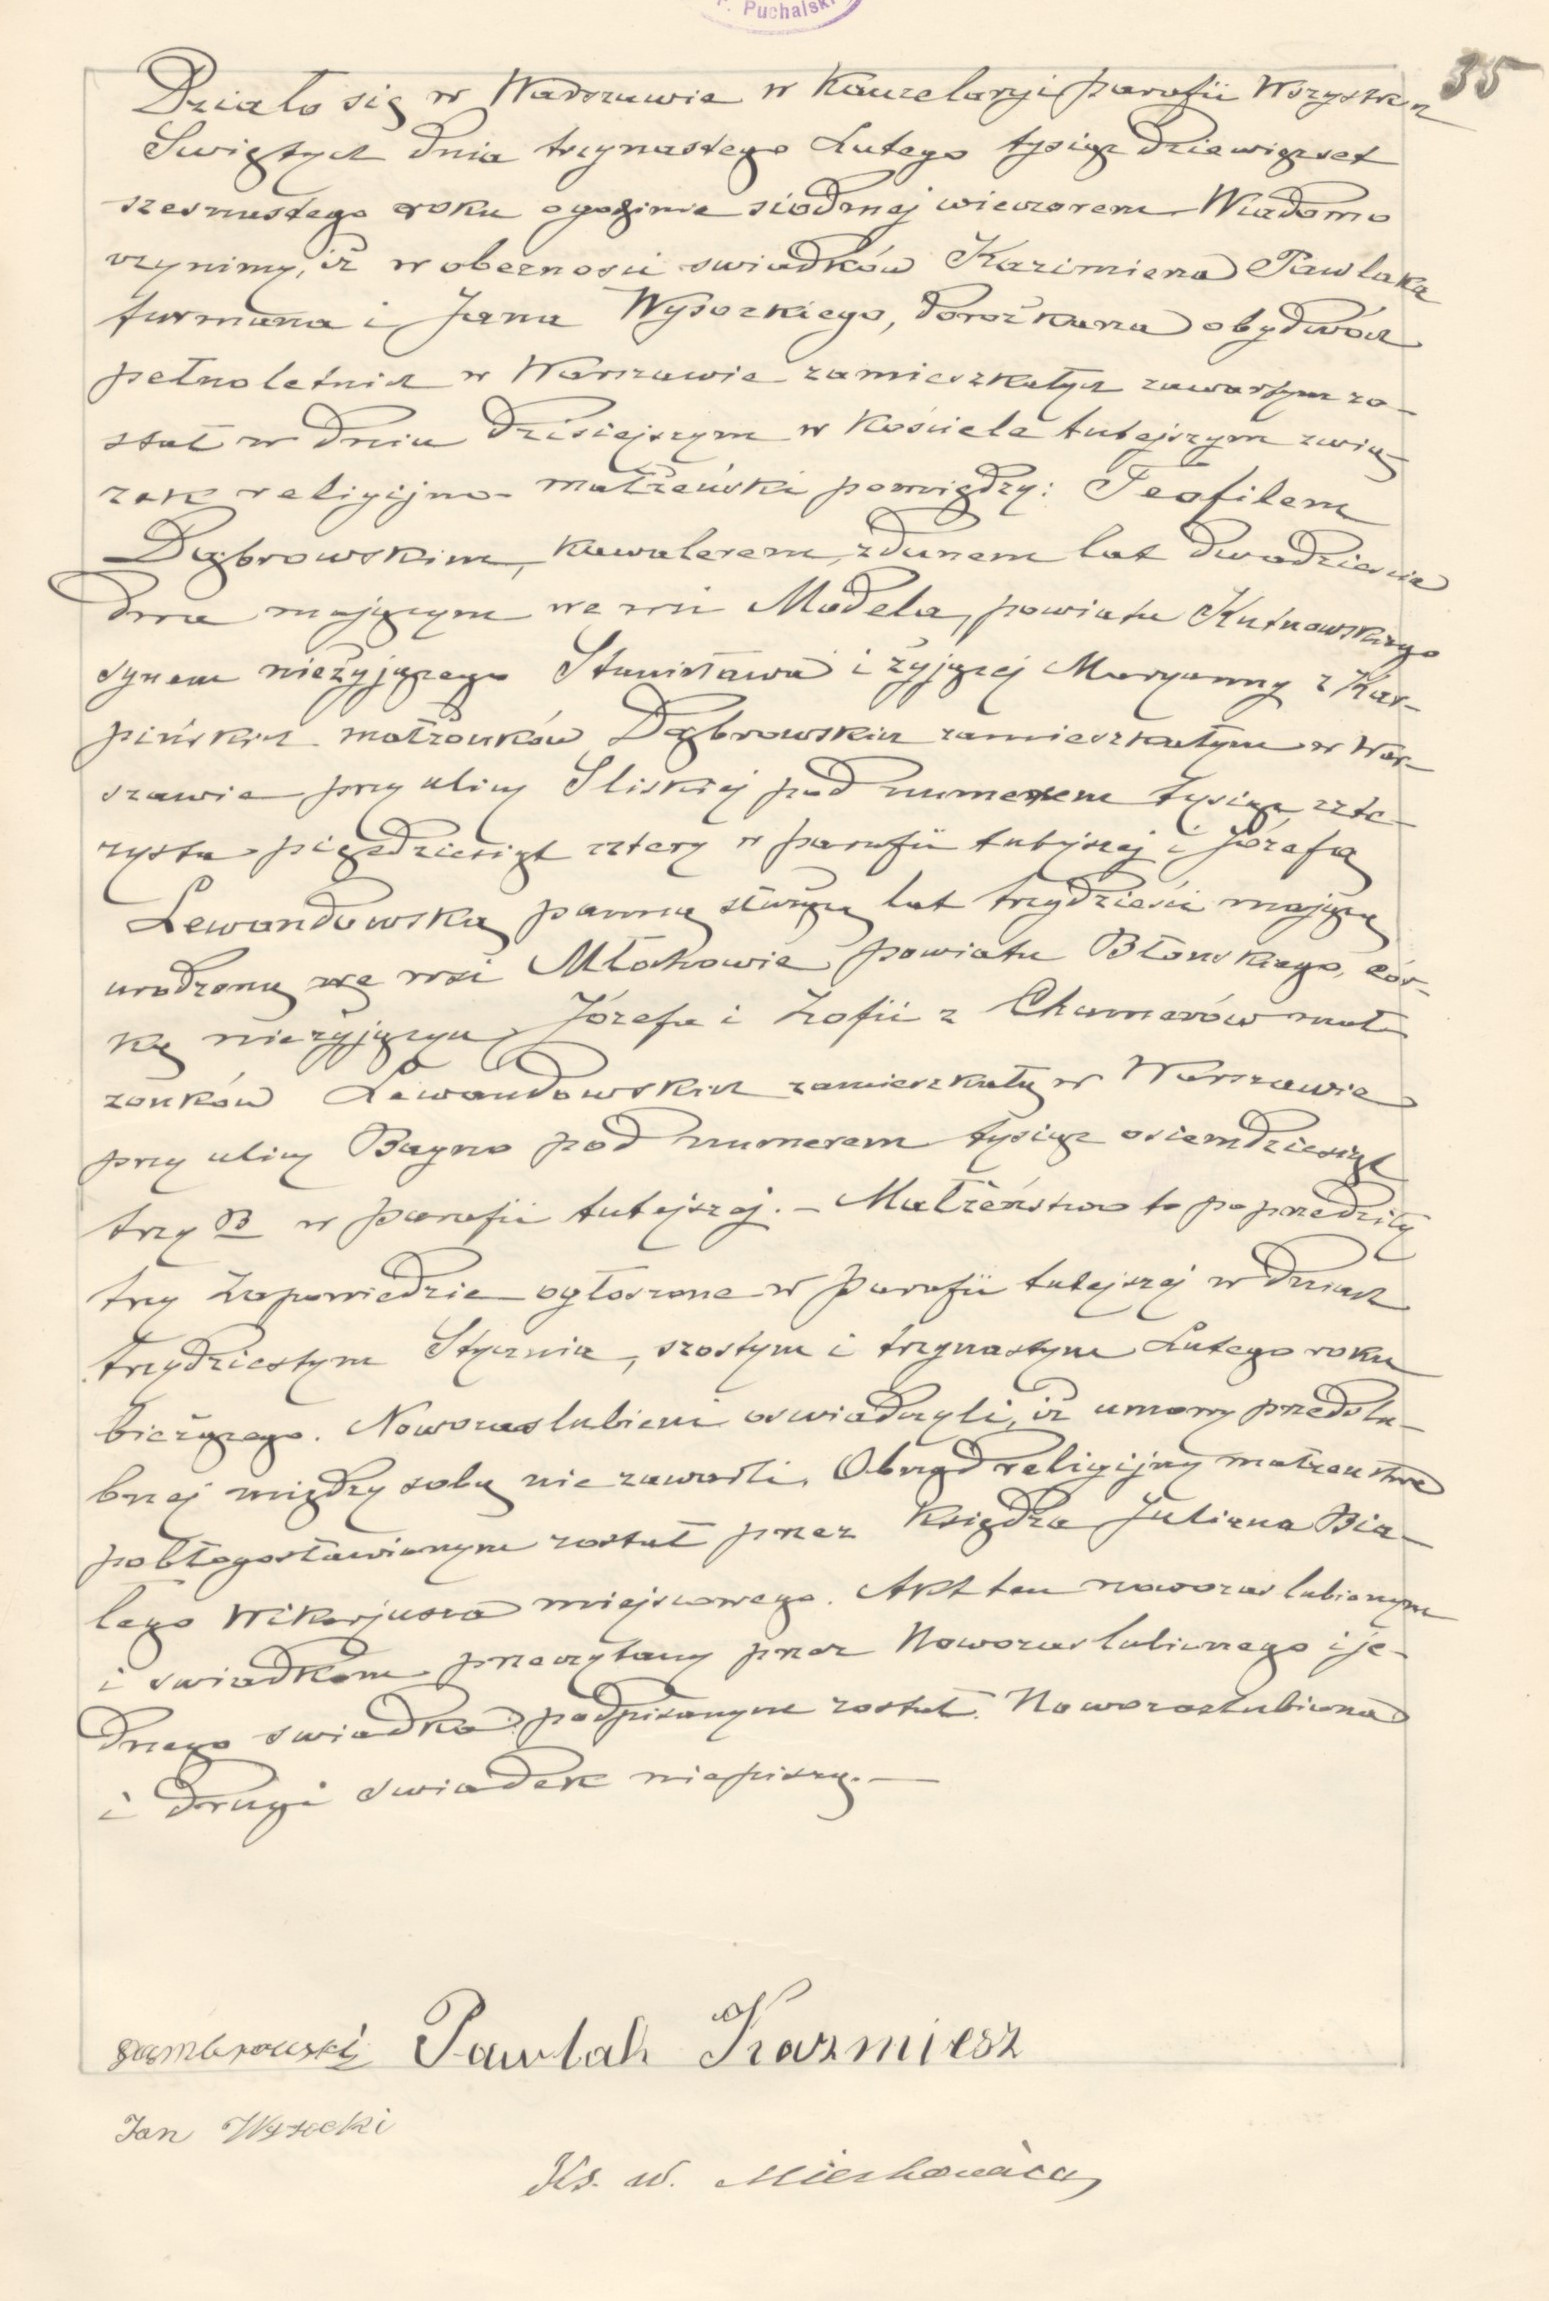 P. Puchalski
35
Działo się w Warszawie w Kancelaryi parafii Wszystkich
Swiętych dnia trzynastego Lutego tysiąc dziewięset
szesnastego roku o godzinie siodmej wieczorem Wiadomo
czynimy, iż w obecnosci swiadków Kazimierza Pawlaka
furmana i Jana Wysockiego, dorożkarza obydwóch
pełnoletnich w Warszawie zamieszkałych zawartym zo-
stał w dniu dzisiejszym w Kościele tutejszym zwią-
zek religijno-małżeński pomiędzy: Teofilem
Dąbrowskim, kawalerem, zdunem lat dwadziescia
dwa mającym we wsi Modela, powiatu Kutnowskiego
synem nieżyjącego Stanisława i żyjącej Maryanny z Kar-
pińskich małżonków Dąbrowskich zamieszkałym w War-
szawie przy ulicy Sliskiej pod numerem tysiąc czte-
rysta pięćdziesiąt cztery w parafii tutejszej i Józefą
Lewandowską panną służącą lat trzydzieści mającą
urodzoną we wsi Młochowie powiatu Błonskiego, cór-
ką nieżyjących Józefa i Zofii z Chamerów mał-
żonków Lewandowskich zamieszkałą w Warszawie
przy ulicy Bagno pod numerem tysiąc osiemdziesiąt
trzy B w parafii tutejszej. – Małżeństwo to poprzedziły
trzy Zapowiedzie ogłoszone w parafii tutejszej w dniach
trzydziestym Stycznia, szostym i trzynastym Lutego roku
bieżącego. Nowozaslubieni oswiadczyli, iż umowy przedslu-
bnej między sobą nie zawarli. Obrząd religijny małżenstwa
pobłogosławionym został przez Księdza Juliana Bia-
łego Wikarjusza miejscowego. Akt ten nowozaslubionym
i swiadkom przeczytany przez Nowozaslubionego i je-
dnego swiadka podpisanym został. Nowozaslubiona
i drugi swiadek niepiszą. –
Dąmbrowski Pawlak Kazmiesz
Jan Wysocki
Ks. W.